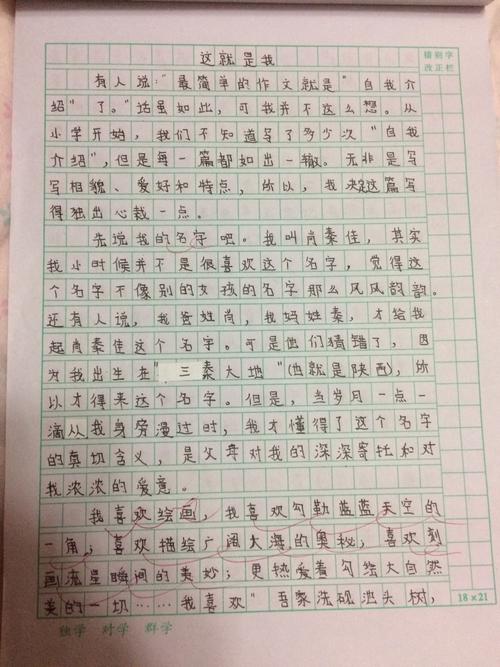 这就是我
错别字
改正栏
有人说:“最简单的作文就是“自我介
绍”了。”话虽如此，可我并不这么想。从
小学开始，我们不知道写了多少次“自我
介绍”，但是每一篇都如出一辙。无非是写
写相貌、爱好和特点，所以，我决定这篇写
得独出心裁一点。
先说我的名字吧。我叫肖秦佳，其实
我小时候并不是很喜欢这个名字，觉得这
个名字不像别的女孩的名字那么风风韵韵。
还有人说，我爸姓肖，我妈姓秦，才给我
起肖秦佳这个名字。可是他们猜错了，因
为我出生在“三秦大地”(也就是陕西)，所
以才得来这个名字。但是，当岁月一点一
滴从我身旁漫过时，我才懂得了这个名字
的真切含义，是父母对我的深深寄托和对
我浓浓的爱意。
我喜欢绘画，我喜欢勾勒蓝蓝天空的
一角，喜欢描绘广阔大海的奥秘，喜欢刻
画流星瞬间的美妙；更热爱着勾绘大自然
美的一切……我喜欢“吾家洗砚池头树，
18×21
独学 对学 群学